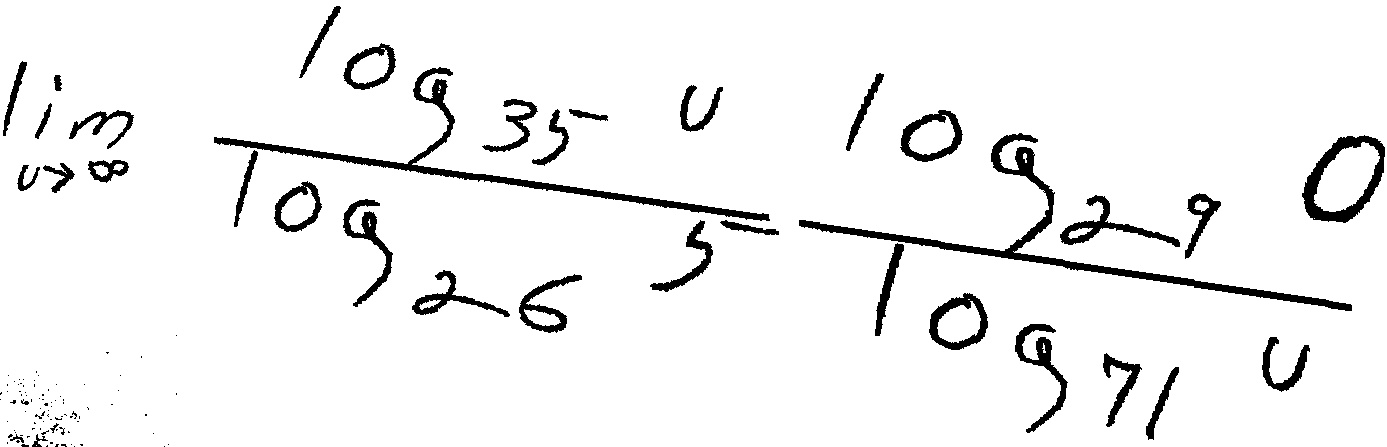 \lim_{u \to \infty} \frac{\log_{35} u}{\log_{26} 5} \frac{\log_{29} 0}{\log_{71} u}